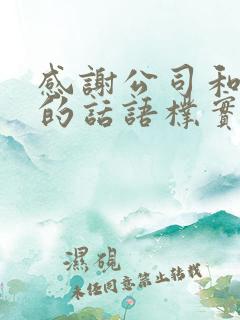 感謝公司和
的話語樸實
濕硯
未經同意禁止轉載